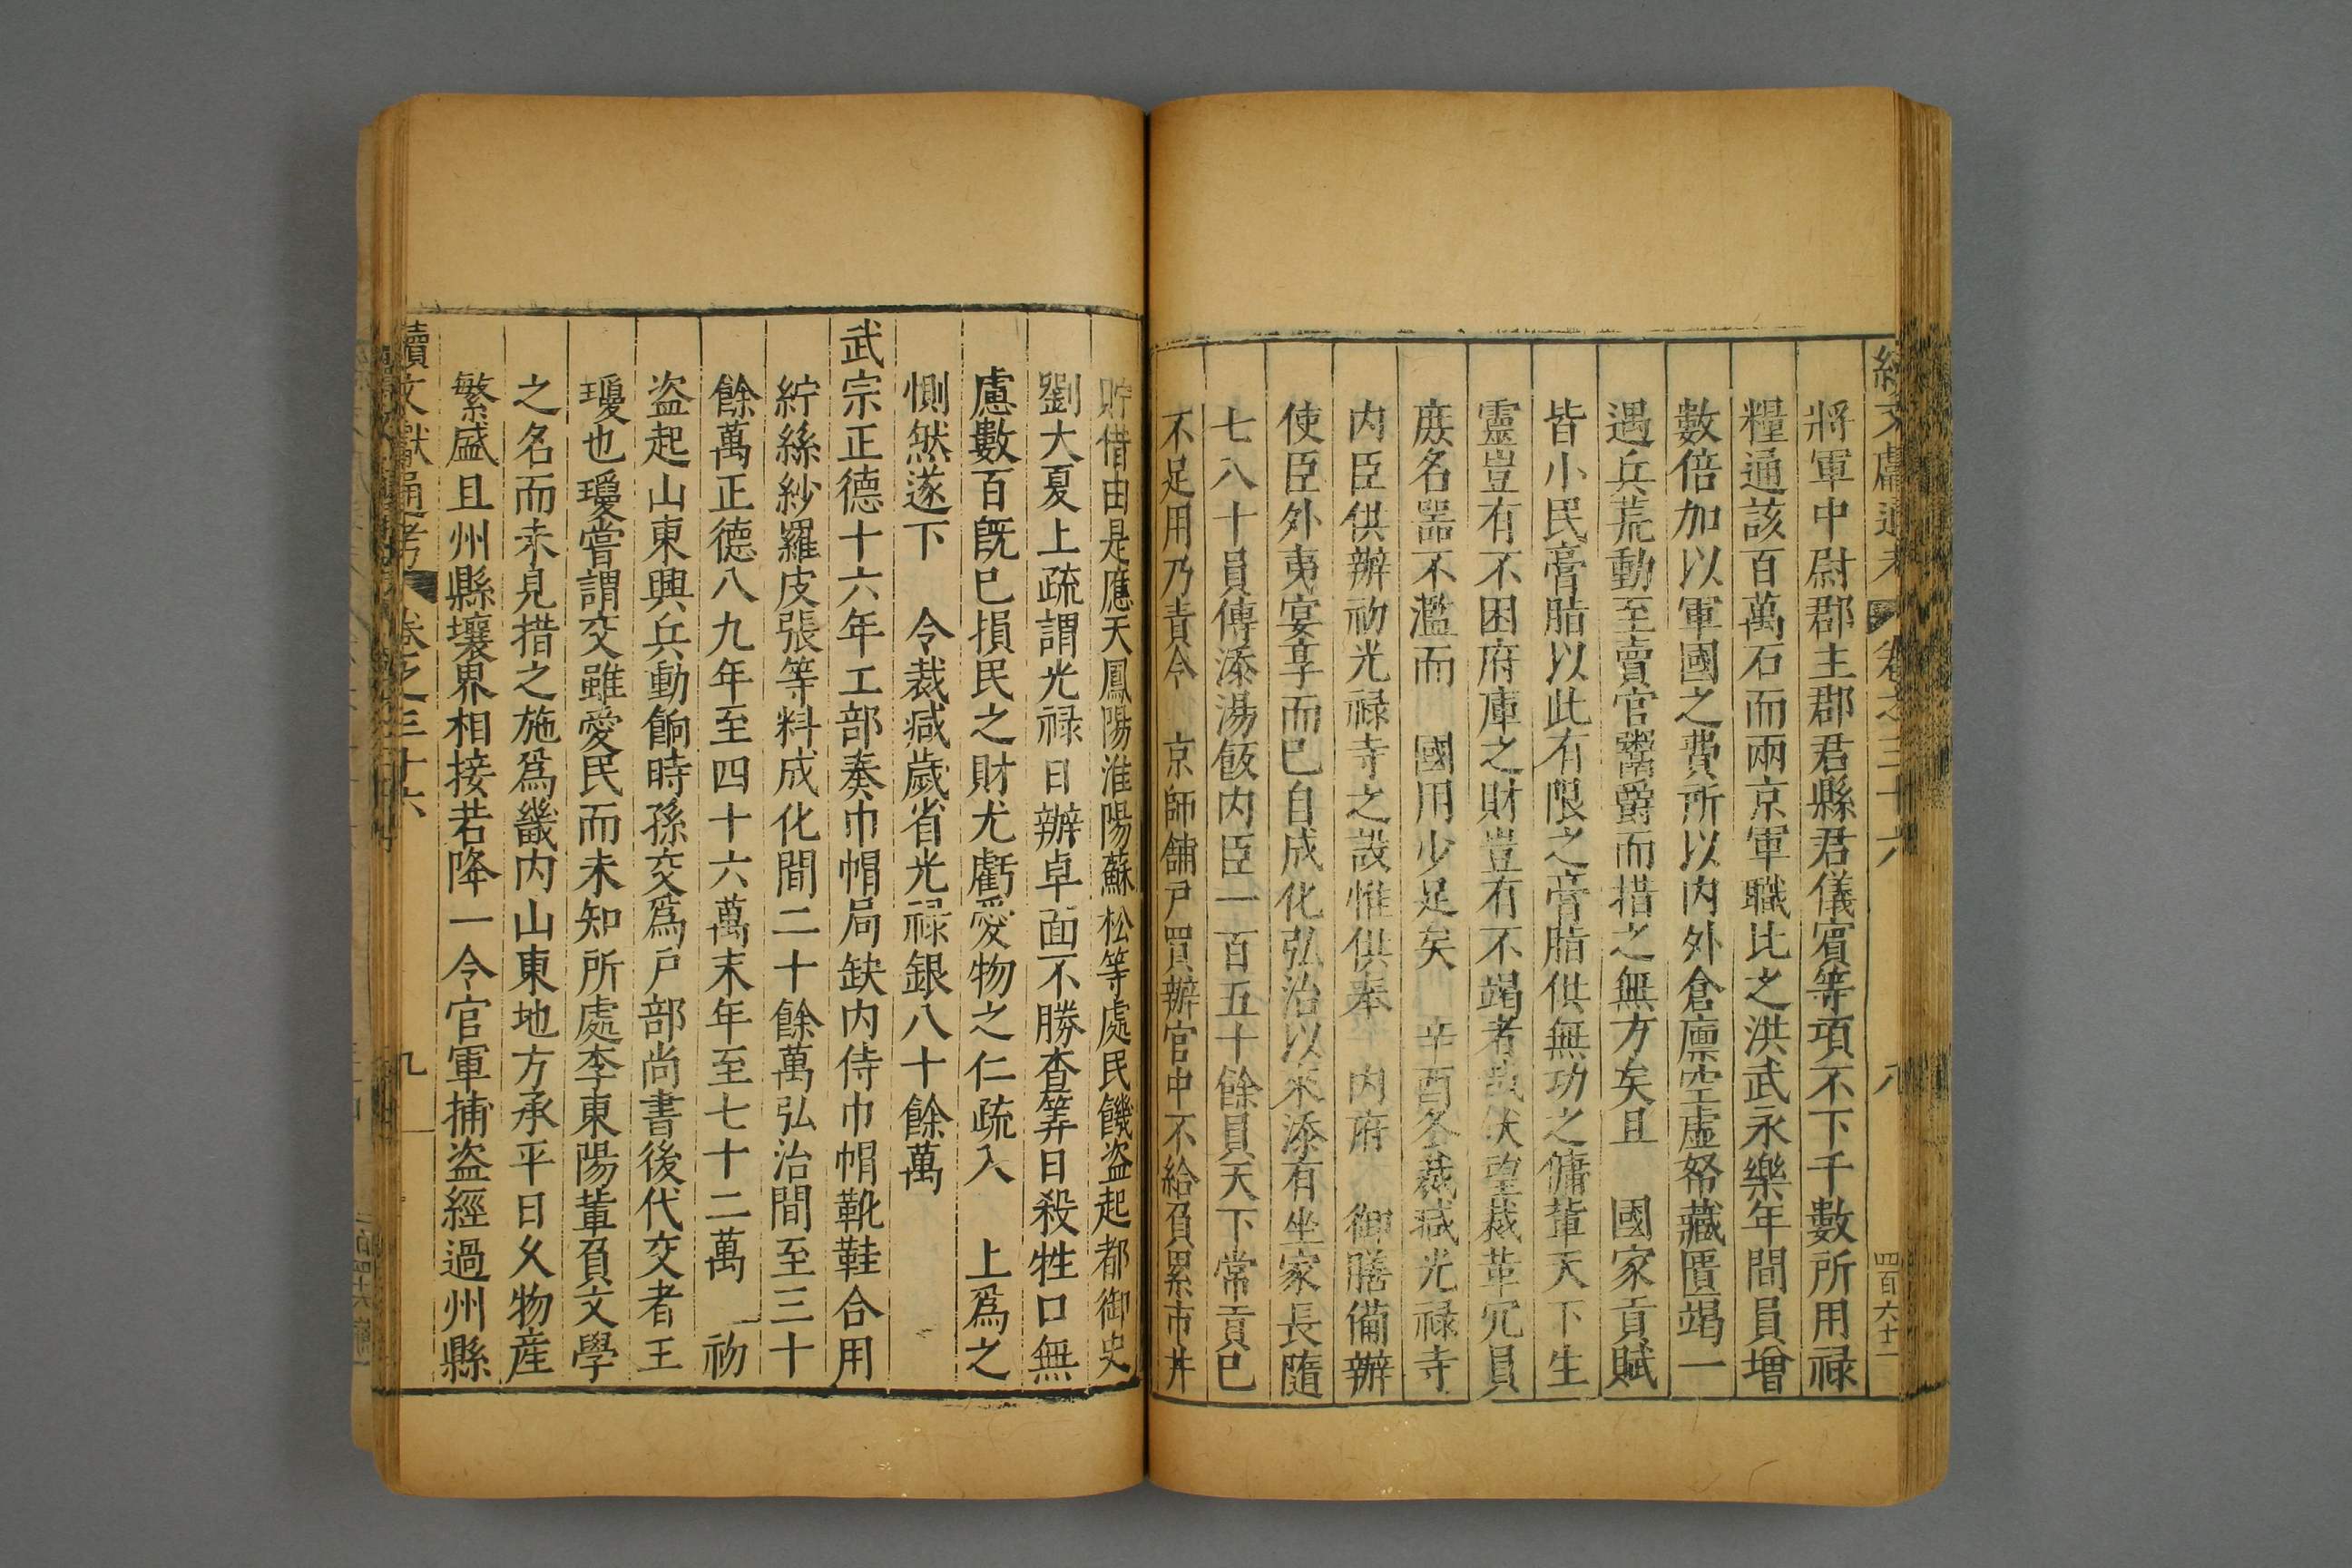 續文獻通考 卷之三十六 八 四百六十一
將軍中尉郡主郡君縣君儀賓等項不下千數所用祿
糧通該百萬石而兩京軍職比之洪武永樂年間員增
數倍加以軍國之費所以内外倉廪空虚帑藏匱竭一
遇兵荒動至賣官鬻爵而措之無方矣且 國家貢賦
皆小民膏脂以此有限之膏脂供無功之傭輩天下生
靈豈有不困府庫之財豈有不竭者哉伏望裁革冗員
庻名器不濫而 國用少足矣 辛酉冬裁减光禄寺
内臣供辦初光禄寺之設惟供奉 内府 御膳備辦
使臣外夷宴享而已自成化弘治以來添有坐家長隨
七八十員傳添湯飯内臣一百五十餘員天下常貢已
不足用乃責令 京師舖戸買辦官中不給負累市井
貯借由是應天鳳陽淮陽蘇松等處民饑盗起都御史
劉大夏上疏謂光禄日辦卓面不勝查筭日殺牲口無
慮數百旣已損民之財尤虧愛物之仁疏入 上爲之
惻然遂下 令裁减歲省光禄銀八十餘萬
武宗正德十六年工部奏巾帽局缺内侍巾帽靴鞋合用
紵絲紗羅皮張等料成化間二十餘萬弘治間至三十
餘萬正德八九年至四十六萬末年至七十二萬 初
盗起山東興兵動餉時孫交爲戸部尚書後代交者王
瓊也瓊嘗謂交雖愛民而未知所處李東陽輩負文學
之名而未見措之施爲畿内山東地方承平日乆物産
繁盛且州縣壤界相接若降一令官軍捕盗經過州縣
續文獻通考 卷之三十六 九